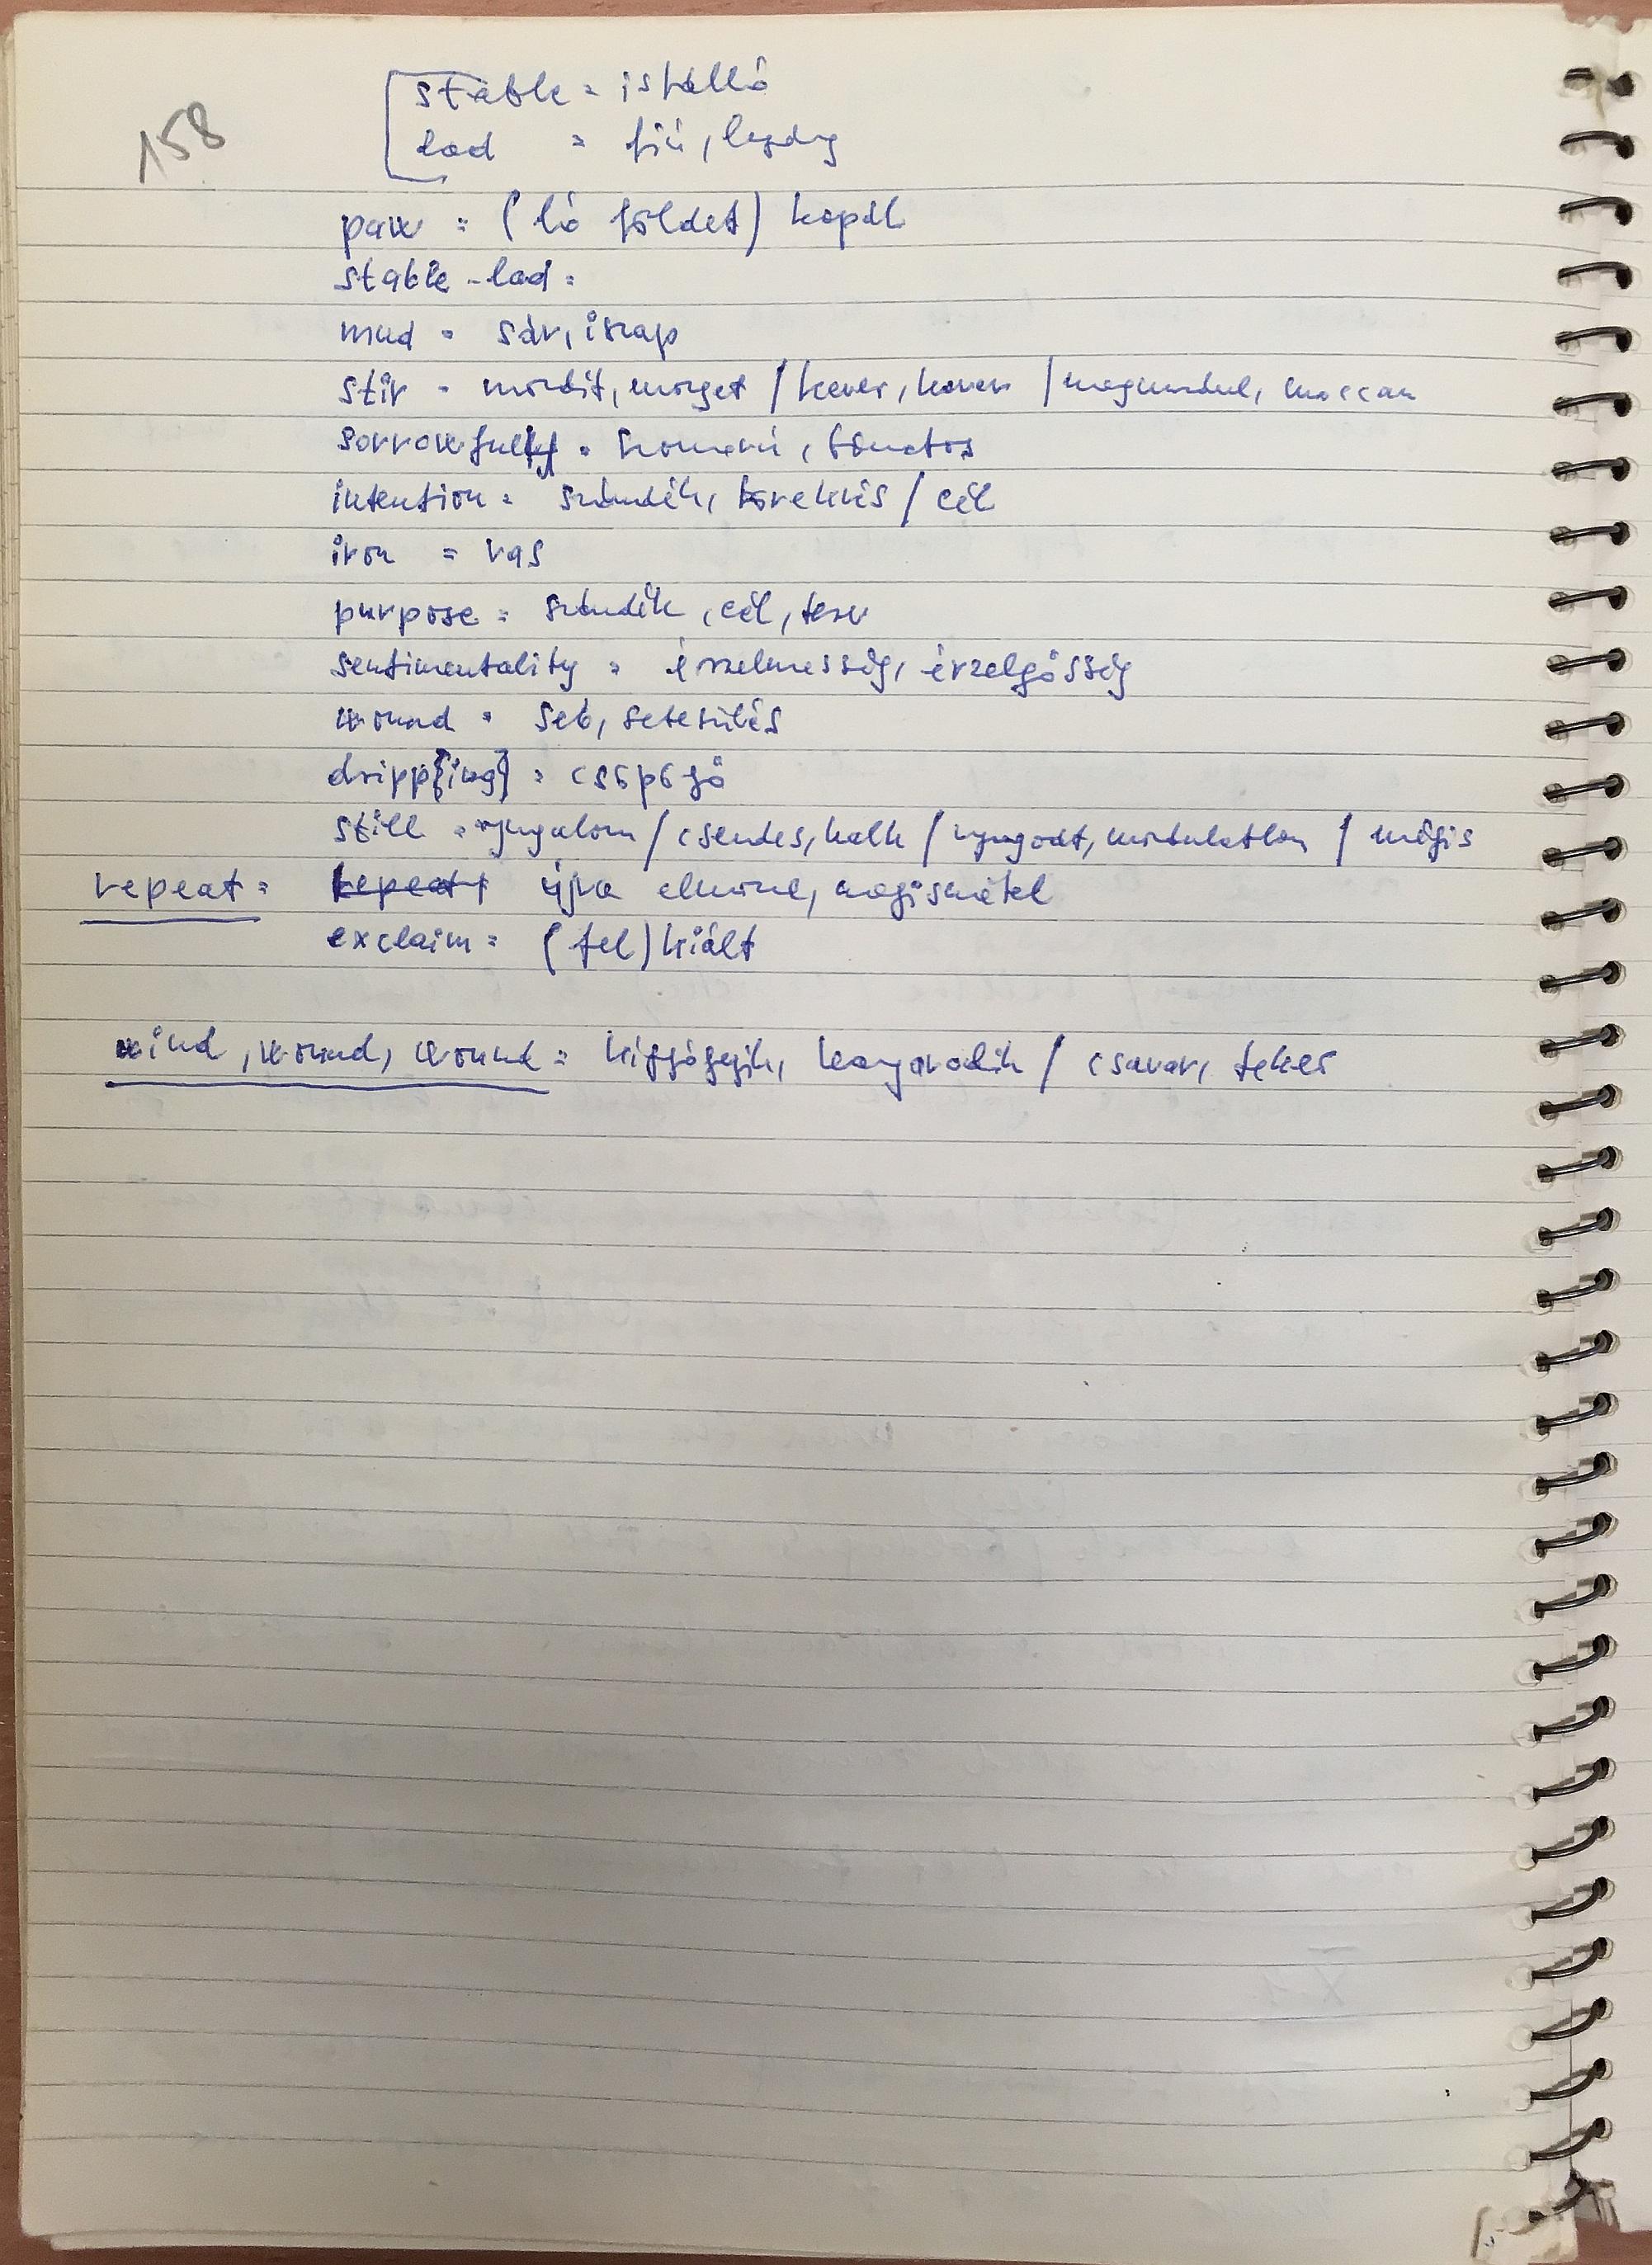 158
stable = istálló
lad = fiú, legény
paw = (ló földet) kapál
stable-lad =
mud = sár, iszap
stir = mozdit, mozgat / kever, kavar / megmozdul, moccan
sorrowful = szomorú, bánatos
intention = szándék, törekvés / cél
iron = vas
purpose = szándék, cél, terv
sentimentality = érzelmesség, érzelgősség
wound = seb, sebesülés
dripp{ing} = csöpögő
still = nyugalom / csendes, halk / nyugodt, mozdulatlan / mégis
repeat = repeat újra elmond, megismétel
exclaim = (fel)kiált
wind, wound, wound = kígyózik, kanyarodik / csavar, teker